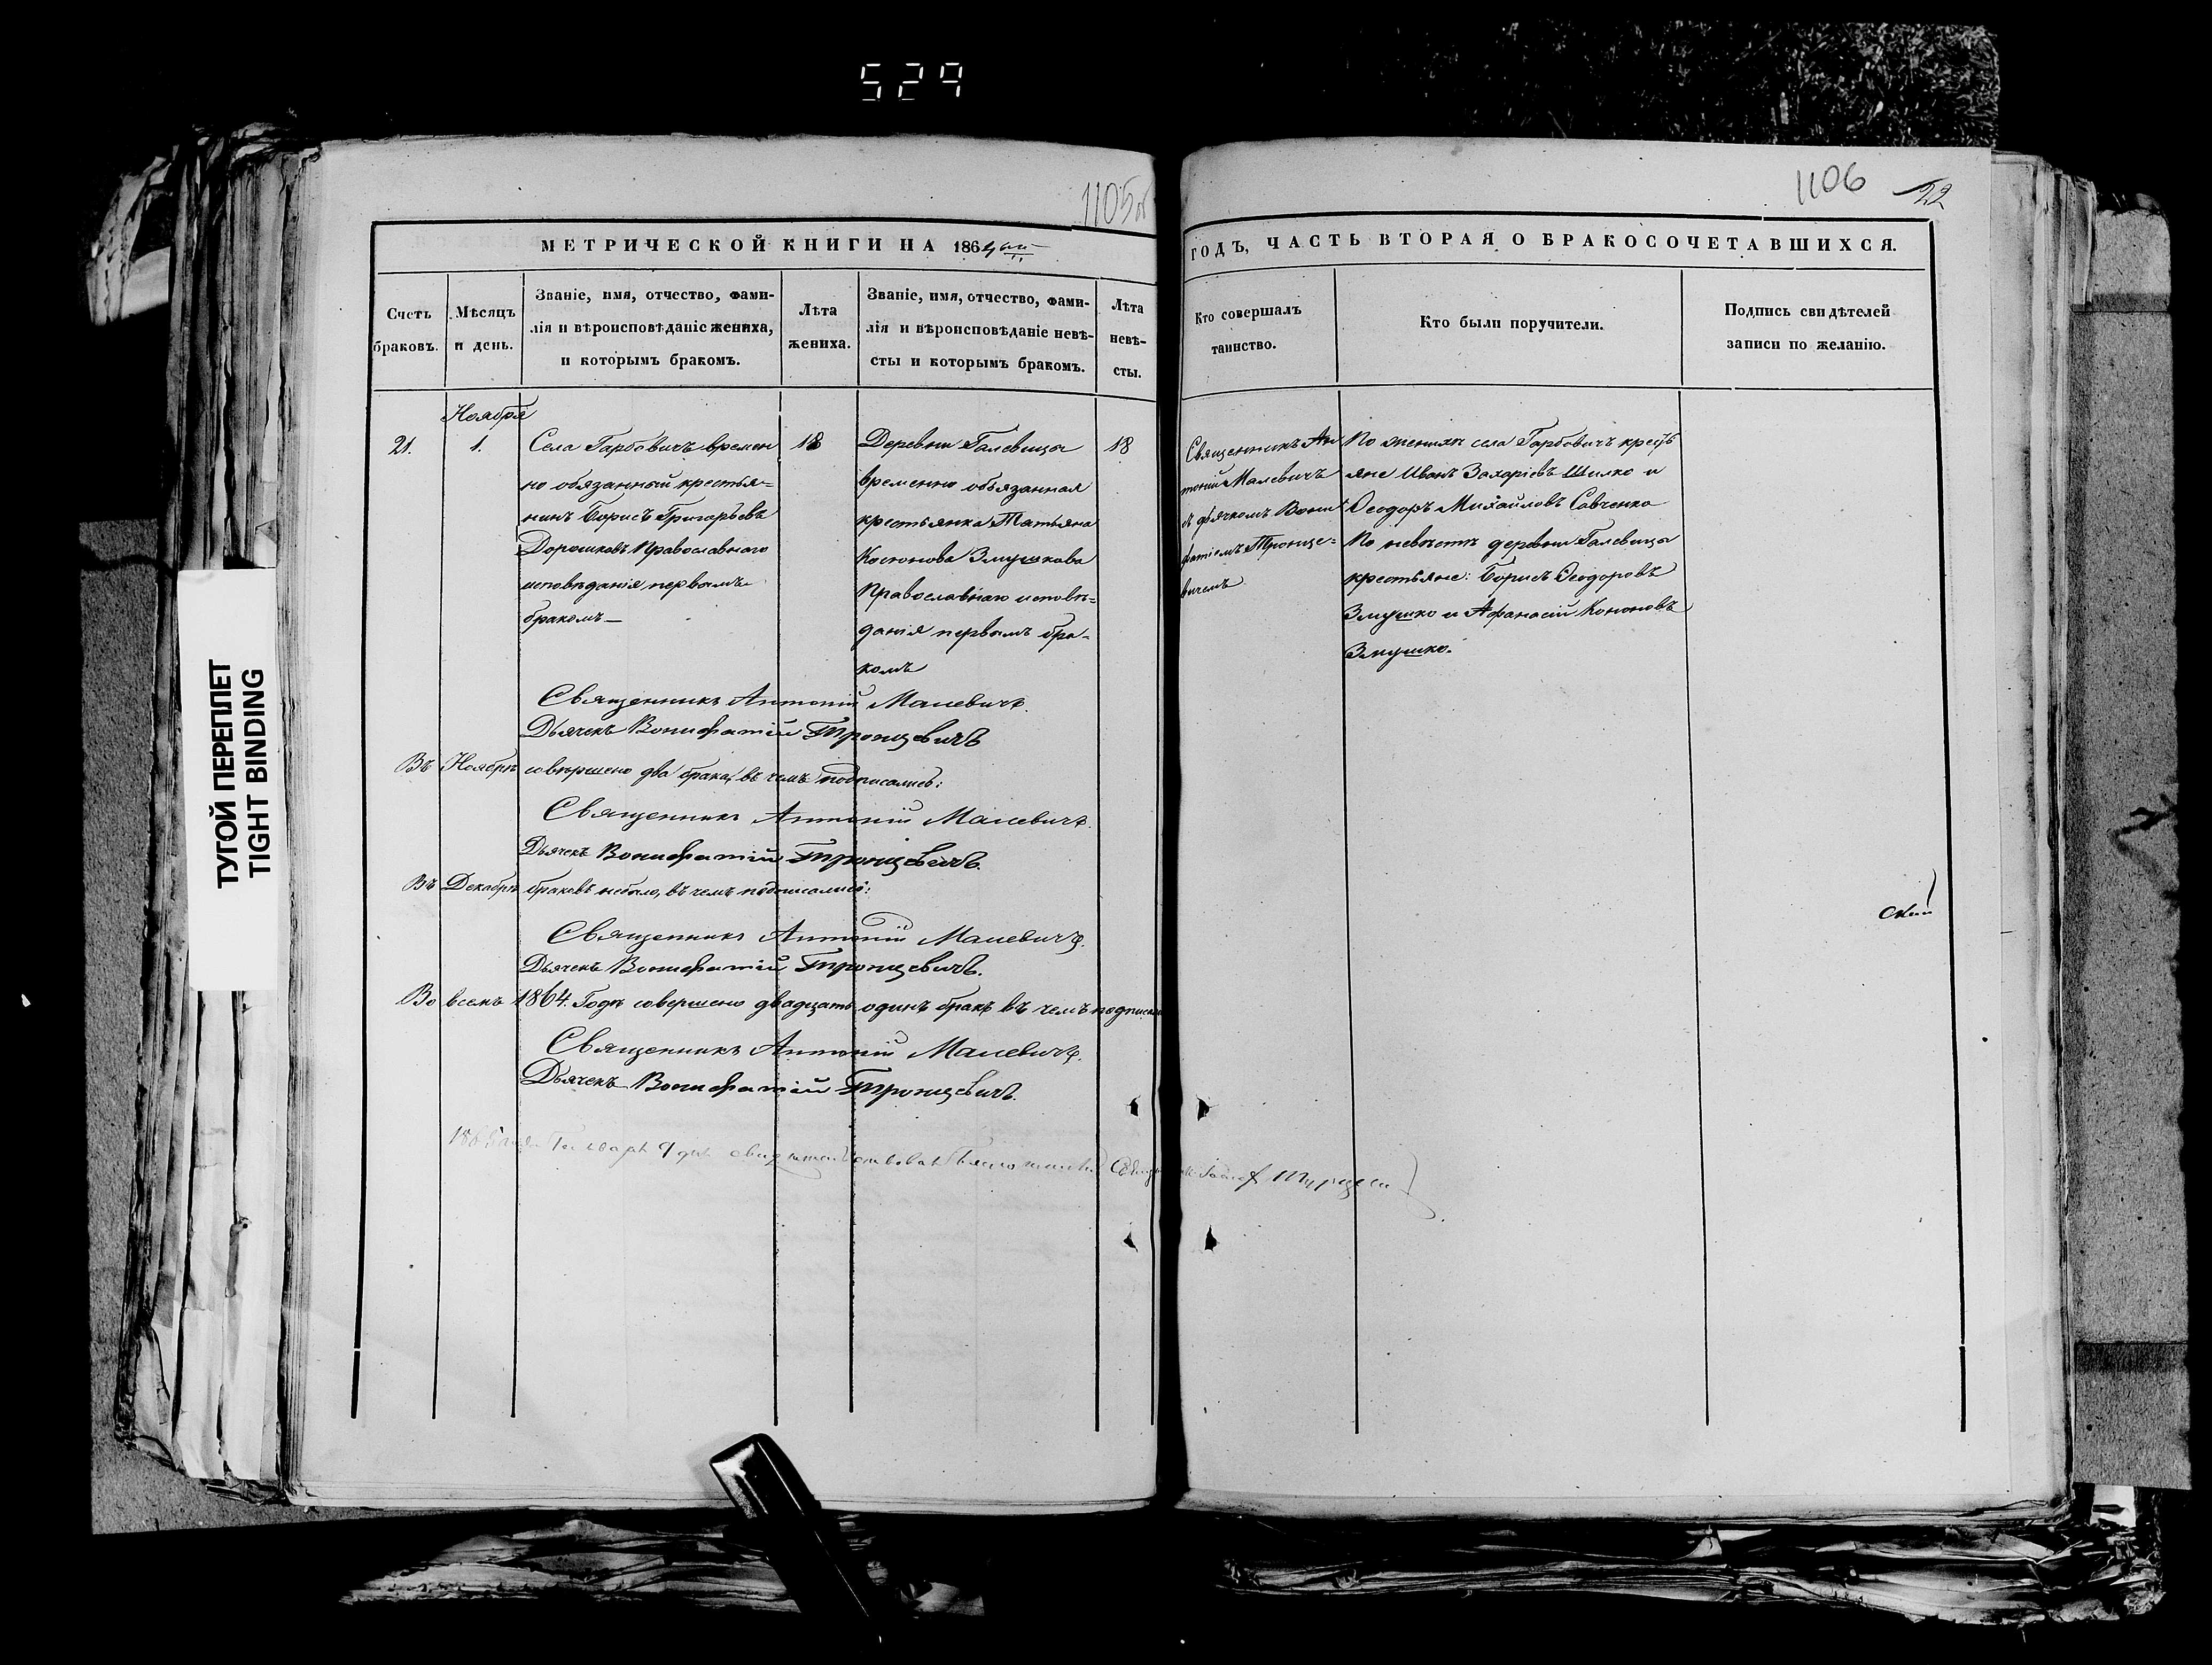 529
1105об
1106 22
МЕТРИЧЕСКОЙ КНИГИ НА 1864
ГОДЪ, ЧАСТЬ ВТОРАЯ О БРАКОСОЧЕТАВШИХСЯ.
Счетъ браковъ.
Мѣсяцъ и день.
Званіе, имя, отчество, фами-
лія и вѣроисповѣданіе жениха,
и которымъ бракомъ.
Лѣта
жениха.
Званіе, имя, отчество, фами-
лія и вѣроисповѣданіе невѣ-
сты и которымъ бракомъ.
Лѣта
невѣ-
сты.
Кто совершалъ
таинство.
Кто были поручители.
Подпись свидѣтелей
записи по желанію.
Ноября
21.
1.
Села Гарбовичъ времен
но обязанный крестья=
нинъ Борисъ Григорьевъ
Дорошковъ Православнаго
исповѣданія первымъ
бракомъ
18
Деревни Галевицы
временно обязанная
крестьянка Татьяна
Кононова Змушкова
Православнаго исповѣ=
данія первымъ бра-
комъ
18
Священникъ Ан
тоній Малевичъ
съ дьячкомъ Вони
фатіемъ Тронце=
вичемъ
По женихѣ села Гарбовичъ кресть
яне Иванъ Захаріевъ Шилко и
Ѳеодоръ Михайловъ Савченко
По невѣстѣ деревни Галевицы
крестьяне: Борисъ Ѳеодоровъ
Змушко и Афанасій Кононовъ
Змушко.
Священникъ Антоній Малевичъ.
Дьячекъ Вонифатій Тронцевичъ
Въ Ноябрѣ совершено два брака, въ чемъ подписались:
Священникъ Антоній Малевичъ.
Дьячекъ Вонифатій Тронцевичъ.
Въ Декабрѣ браковъ небыло, въ чемъ подписались:
Священникъ Антоній Малевичъ.
Дьячекъ Вонифатій Тронцевичъ.
Во всемъ 1864. Годѣ совершено двадцать одинъ бракъ въ чемъ
Священникъ Антоній Малевичъ.
Дьячекъ Вонифатій Тронцевичъ.
1865 Генваря 9 дня
ТУГОЙ ПЕРЕПЛЕТ
TIGHT BINDING